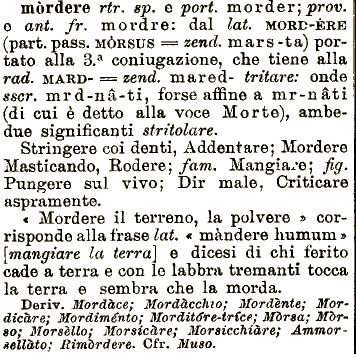 mòrdere rtr. sp. e port. morder; prov.
e ant. fr. mordre: dal lat. MORD-ÈRE
(part. pass. MÒRSUS = zend. mars-ta) por-
tato alla 3.ª coniugazione, che tiene alla
rad. MARD- = zend. mared- tritare: onde
sscr. mrd-nâ-ti, forse affine a mr-nâti
(di cui è detto alla voce Morte), ambe-
due significanti stritolare.
Stringere coi denti, Addentare; Mordere
Masticando, Rodere; fam. Mangiare; fig.
Pungere sul vivo; Dir male, Criticare
aspramente.
« Mordere il terreno, la polvere » cor-
risponde alla frase lat. « màndere humum »
[mangiare la terra] e dicesi di chi ferito
cade a terra e con le labbra tremanti tocca
la terra e sembra che la morda.
Deriv. Mordàce; Mordàcchio; Mordènte; Mor-
dicàre; Mordiménto; Morditóre-tríce; Mòrsa; Mòr-
so; Morsèllo; Morsicàre; Morsicchiàre; Ammor-
sellàto; Rimòrdere. Cfr. Muso.